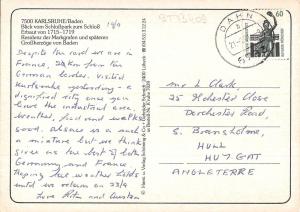 7500 KARLSRUHE/Baden
Blick vom Schloßpark zum Schloß
Erbaut von 1715-1719
Residenz der Markgrafen und späteren
Großherzöge von Baden
Despite the card we are in
France, 22 km from the
German border. Visited
Karlsruhe yesterday - a
dignified city once you
leave the industrial area.
Weather, food and walks
good. Alsace is a such
a mixture but we think
gives us the best of both
Germany and France
Hoping the weather holds
until we return on 23/9
Love Rita and
DAHN
60
Mr L Clark,
25 Close
Dorchester Road,
S. Bransholme,
HULL
HU7
ANGLETERRE